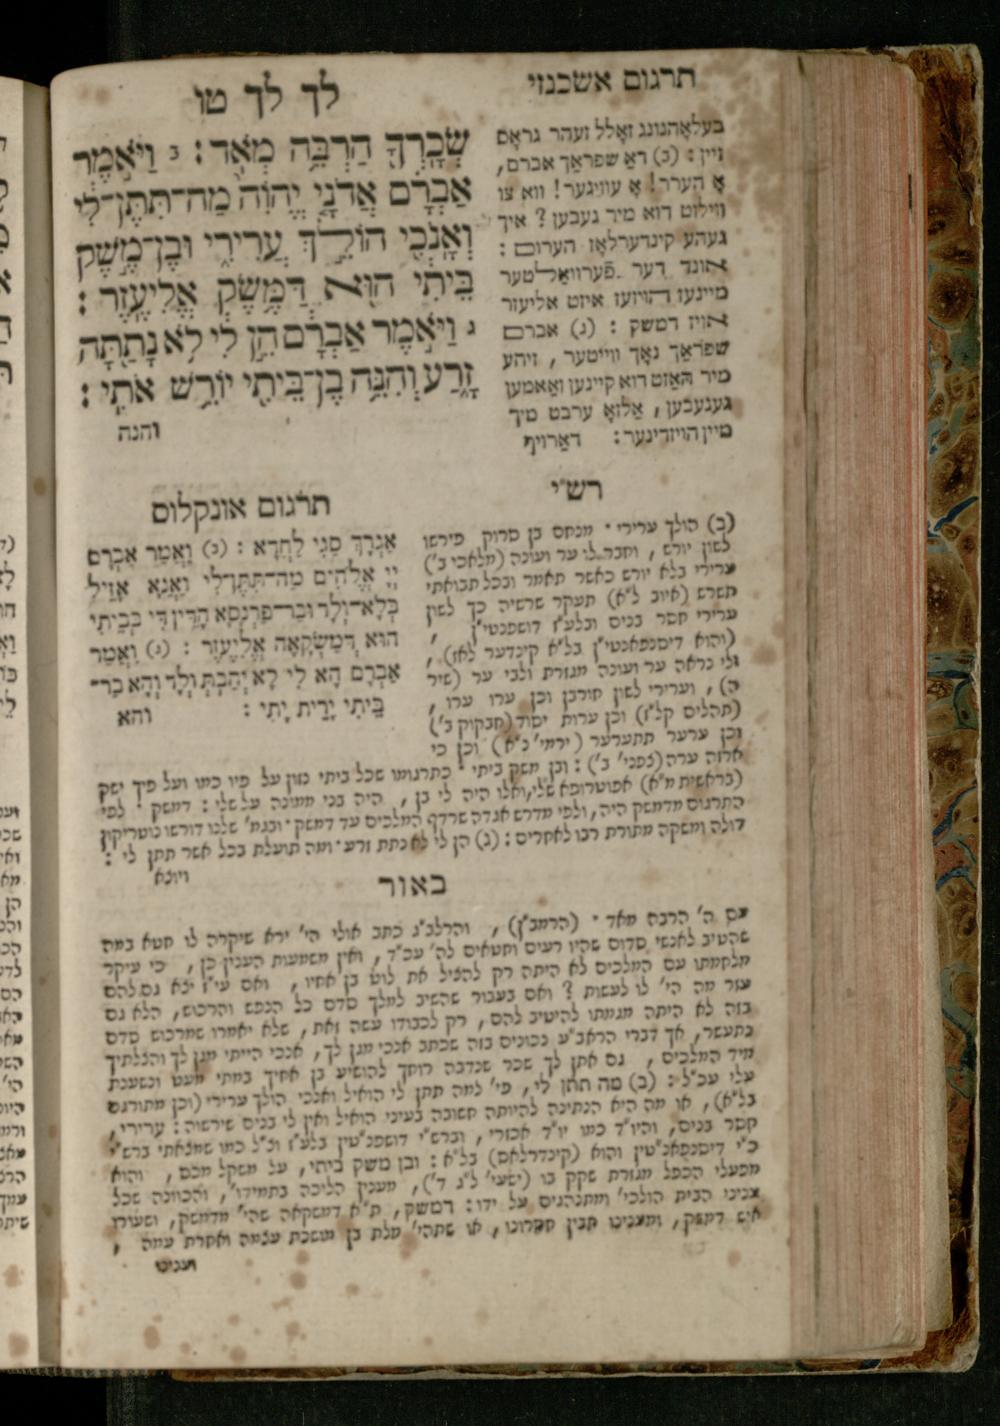 תרגום אשכנזי
לך לך טו
שְׂכָרְךָ הַרְבֵּה מְאֹד׃ ב וַיֹּאמֶר
אַבְרָם אֲדֹנָי יֱהוִֹה מַה־תִּתֶּן־לִי
וְאָנֹכִי הוֹלֵךְ עֲרִירִי וּבֶן־מֶשֶׁק
בֵּיתִי הוּא דַּמֶּשֶׂק אֱלִיעֶזֶר׃
ג וַיֹּאמֶר אַבְרָם הֵן לִי לֹא נָתַתָּה
זָרַע וְהִנֵּה בֶן־בֵּיתִי יוֹרֵשׁ אֹתִי׃
והנה
בעלאָהנונג זאָלל זעהר גראָס
זיין: (ב) דאַ שפראַך אברם,
אָ הערר! אָ עוויגער! וואו צו
ווילסט דוא מיר געבען? איך
געהע קינדערלאָז הערום:
אונד דער פֿערוואַלטער
מיינעז הויזעז איזט אליעזר
אויז דמשק: (ג) אברם
שפראַך נאָך ווייטער, זיהע
מיר האַזט דוא קיינען זאַאמען
געגעבען, אַלזאָ ערבט מיך
מיין הויזדינער: דאַרויף
תרגום אונקלוס
אַגְרָךְ סַגִּי לַחֲדָא: (ב) וַאֲמַר אַבְרָם
יְיָ אֱלֹהִים מַה־תִּתֶּן־לִי וַאֲנָא אָזֵיל
בְּלָא־וְלָד וּבַר־פַּרְנָסָא הָדֵין דִּי בְבֵיתִי
הוּא דַמַשְׂקָאָה אֱלִיעֶזֶר: (ג) וַאֲמַר
אַבְרָם הָא לִי לָא יְהַבְתְּ וְלָד וְהָא בַר־
בֵּיתִי יָרֵית יָתִי:
והא
רש״י
(ב) הולך ערירי · מנחם בן סרוק פירשו
לשון יורש, וחבר לו ער ועונה (מלאכי ב')
ערירי בלא יורש כאשר תאמר ובכל תבואתי
תשרש (איוב ל"א) תעקר שרשיה כך לשון
ערירי חסר בנים ובלע"ז דושפנטי"ן,
(והוא דיסנפאנטי"ן בל"א קינדער לאז),
ולי נראה ער ועונה מגזרת ולבי ער (שיר
ה), וערירי לשון חורבן וכן ערו ערו,
(תהלים קל"ז) וכן ערות יסוד (חבקוק ב')
וכן ערער תתערער (ירמי' נ"א) וכן כי
ארזה ערה (צפני' ב'): ובן משק ביתי · כתרגומו שכל ביתי נזון על פיו כמו ועל פיך ישק
(בראשית מ"א) אפוטרופא שלי, ואלו היה לי בן, היה בני ממונה על שלי: דמשק · לפי
התרגום מדמשק היה, ולפי מדרש אגדה שרדף המלכים עד דמשק · ובגמ' שלנו דורשו נוטריקון
דולה ומשקה מתורת רבו לאחרים: (ג) הן לי לא נתת זרע · ומה תועלת בכל אשר תתן לי:
ויוצא
באור
עם ה' הרבה מאד · (הרמב"ן), והרלב"ג כתב אולי הי' ירא שיקרה לו חטא במה
שהטיב לאנשי סדום שהיו רעים וחטאים לה' עכ"ד, ואין משמעות הענין כן, כי עיקר
מלחמתו עם המלכים לא היתה רק להציל את לוט בן אחיו, ואם עי"ז יצא גם להם
עזר מה הי' לו לעשות? ואם בעבור שהשיב למלך סדם כל הנפש והרכוש, הלא גם
בזה לא היתה מגמתו להיטיב להם, רק לכבודו עשה זאת, שלא יאמרו שמרכוש סדם
נתעשר, אך דברי הראב"ע נכונים בזה שכתב אנכי מגן לך, אנכי הייתי מגן לך והצלתיך
מיד המלכים, גם אתן לך שכר שנדבה רוחך להושיע בן אחיך במתי מעט ונשענת
עלי עכ"ל: (ב) מה תתן לי, פי' למה תתן לי הואיל ואנכי הולך ערירי (וכן מתורגם
בל"א), או מה היא הנתינה להיותה חשובה בעיני הואיל ואין לי בנים שירשוה: ערירי,
חסר בנים, והיו"ד כמו יו"ד אכזרי, וברש"י דושפנ"טין בלע"ז וצ"ל כמו שמצאתי ברש"י
כ"י דיסנפאנ"טין והוא (קינדרלאס) בל"א: ובן משק ביתי, על משקל מכס, והוא
מפעלי הכפל מגזרת שקק בו (ישעי' ל"ג ד'), מענין הליכה בתמידו', והכוונה שכל
צניני הבית הולכי' ומתנהגים על ידו: דמשק, ת"א דמשקאה שהי' מדמשק, ושעורו
איש דמשק, ומצאנו תבין חסרונו, או שתהי' מלת בן מושכת עצמה ואחרת עמה,